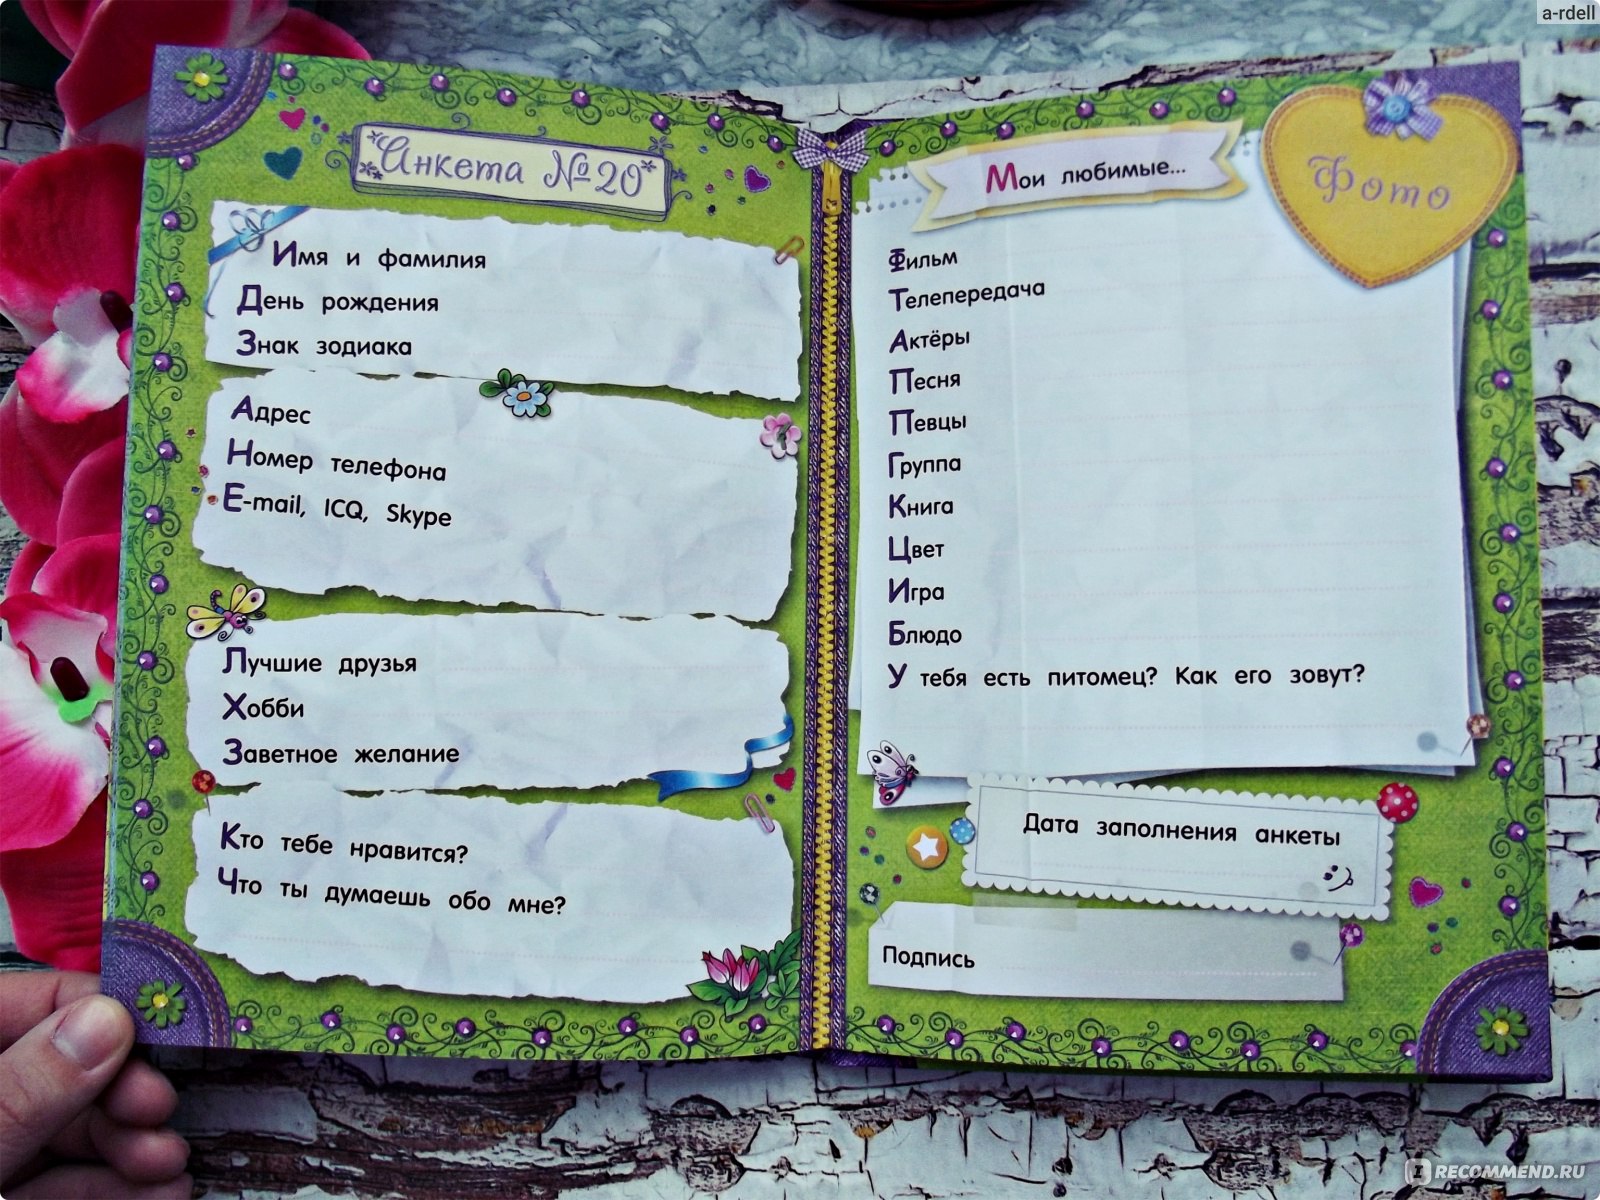 a-rdell
Анкета №20
Имя и фамилия
День рождения
Знак зодиака
Адрес
Номер телефона
E-mail, ICQ, Skype
Лучшие друзья
Хобби
Заветное желание
Кто тебе нравится?
Что ты думаешь обо мне?
Мои любимые...
Фото
Фильм
Телепередача
Актёры
Песня
Певцы
Группа
Книга
Цвет
Игра
Блюдо
У тебя есть питомец? Как его зовут?
Дата заполнения анкеты
Подпись
RECOMMEND.RU